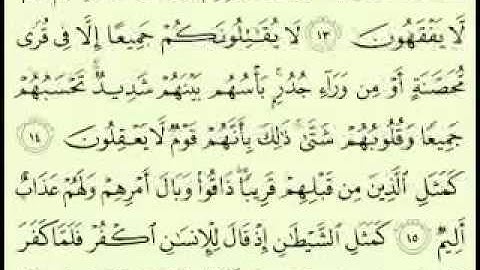 لَا يَفْقَهُونَ ١٣ لَا يُقَٰتِلُونَكُمْ جَمِيعًا إِلَّا فِى قُرًى
مُّحَصَّنَةٍ أَوْ مِن وَرَآءِ جُدُرٍۭ ۚ بَأْسُهُم بَيْنَهُمْ شَدِيدٌ ۚ تَحْسَبُهُمْ
جَمِيعًا وَقُلُوبُهُمْ شَتَّىٰ ۚ ذَٰلِكَ بِأَنَّهُمْ قَوْمٌ لَّا يَعْقِلُونَ ١٤
كَمَثَلِ ٱلَّذِينَ مِن قَبْلِهِمْ قَرِيبًا ۖ ذَاقُوا۟ وَبَالَ أَمْرِهِمْ وَلَهُمْ عَذَابٌ
أَلِيمٌ ١٥ كَمَثَلِ ٱلشَّيْطَٰنِ إِذْ قَالَ لِلْإِنسَٰنِ ٱكْفُرْ فَلَمَّا كَفَرَ